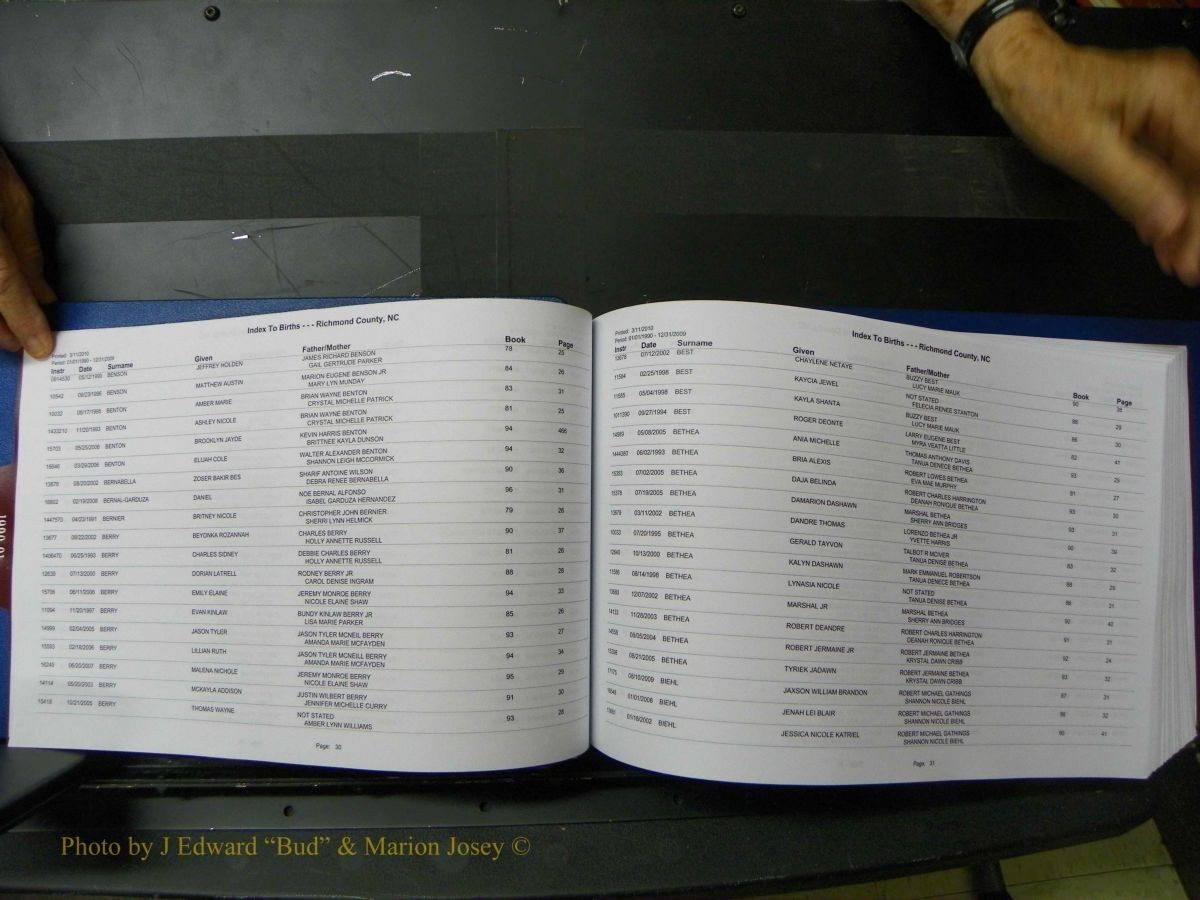 Index To Births - - - Richmond County, NC
Printed: 3/11/2010
Period: 01/01/1990 - 12/31/2009
Instr Date Surname Given Father/Mother Book Page
BENSON JEFFREY HOLDEN JAMES RICHARD BENSON 78 25
GAIL GERTRUDE PARKER
10542 BENSON MATTHEW AUSTIN MARION EUGENE BENSON JR 84 26
MARY LYN MUNDAY
10032 BENTON AMBER MARIE BRIAN WAYNE BENTON 83 31
CRYSTAL MICHELLE PATRICK
1433210 11/20/1993 BENTON ASHLEY NICOLE BRIAN WAYNE BENTON 81 25
CRYSTAL MICHELLE PATRICK
15703 05/25/2006 BENTON BROOKLYN JAYDE KEVIN HARRIS BENTON 94 466
BRITTNEE KAYLA DUNSON
15646 03/29/2006 BENTON ELIJAH COLE WALTER ALEXANDER BENTON 94 32
SHANNON LEIGH MCCORMICK
13676 08/20/2002 BERNABELLA ZOSER BAKIR BES SHARIF ANTOINE WILSON 90 36
DEBRA RENEE BERNABELLA
02/19/2008 BERNAL-GARDUZA DANIEL NOE BERNAL ALFONSO 96 31
ISABEL GARDUZA HERNANDEZ
1447570 04/23/1991 BERNIER BRITNEY NICOLE CHRISTOPHER JOHN BERNIER 79 26
SHERRI LYNN HELMICK
13677 08/22/2002 BERRY BEYONKA ROZANNAH CHARLES BERRY 90 37
HOLLY ANNETTE RUSSELL
1406470 06/25/1993 BERRY CHARLES SIDNEY DEBBIE CHARLES BERRY 81 26
HOLLY ANNETTE RUSSELL
12639 07/13/2000 BERRY DORIAN LATRELL RODNEY BERRY JR 88 28
CAROL DENISE INGRAM
15706 06/11/2006 BERRY EMILY ELAINE JEREMY MONROE BERRY 94 33
NICOLE ELAINE SHAW
11094 11/20/1997 BERRY EVAN KINLAW BUNDY KINLAW BERRY JR 85 26
LISA MARIE PARKER
14999 02/04/2005 BERRY JASON TYLER JASON TYLER MCNEIL BERRY 93 27
AMANDA MARIE MCFAYDEN
15593 02/18/2006 BERRY LILLIAN RUTH JASON TYLER MCNEILL BERRY 94 34
AMANDA MARIE MCFAYDEN
16249 06/20/2007 BERRY MALENA NICHOLE JEREMY MONROE BERRY 95 29
NICOLE ELAINE SHAW
14114 05/20/2003 BERRY MCKAYLA ADDISON JUSTIN WILBERT BERRY 91 30
JENNIFER MICHELLE CURRY
15418 10/21/2005 BERRY THOMAS WAYNE NOT STATED 93 28
AMBER LYNN WILLIAMS
Page: 30
Index To Births - - - Richmond County, NC
Printed: 3/11/2010
Period: 01/01/1990 - 12/31/2009
Instr Date Surname Given Father/Mother Book Page
13678 07/12/2002 BEST CHAYLENE NETAYE BUZZY BEST 90 38
LUCY MARIE MAUK
11584 02/25/1998 BEST KAYCIA JEWEL NOT STATED 86 29
FELECIA RENEE STANTON
11585 05/04/1998 BEST KAYLA SHANTA BUZZY BEST 86 30
LUCY MARIE MAUK
1011390 09/27/1994 BEST ROGER DEONTE LARRY EUGENE BEST 82 41
MYRA VEATTA LITTLE
14989 05/08/2005 BETHEA ANIA MICHELLE THOMAS ANTHONY DAVIS 93 29
TANUA DENECE BETHEA
1444080 06/02/1993 BETHEA BRIA ALEXIS ROBERT LOWES BETHEA 81 27
EVA MAE MURPHY
15263 07/02/2005 BETHEA DAJA BELINDA ROBERT CHARLES HARRINGTON 93 30
DEANAH RONIQUE BETHEA
15378 07/19/2005 BETHEA DAMARION DASHAWN MARSHAL BETHEA 93 31
SHERRY ANN BRIDGES
13679 03/11/2002 BETHEA DANDRE THOMAS LORENZO BETHEA JR 90 39
YVETTE HARRIS
10033 07/20/1995 BETHEA GERALD TAYVON TALBOT R MCIVER 83 32
TANUA DENISE BETHEA
12640 10/13/2000 BETHEA KALYN DASHAWN MARK EMMANUEL ROBERTSON 88 29
TANUA DENECE BETHEA
11586 08/14/1998 BETHEA LYNASIA NICOLE NOT STATED 86 31
TANUA DENISE BETHEA
13680 12/07/2002 BETHEA MARSHAL JR MARSHAL BETHEA 90 40
SHERRY ANN BRIDGES
14133 11/28/2003 BETHEA ROBERT DEANDRE ROBERT CHARLES HARRINGTON 91 31
DEANAH RONIQUE BETHEA
14558 08/05/2004 BETHEA ROBERT JERMAINE JR ROBERT JERMAINE BETHEA 92 24
KRYSTAL DAWN CRIBB
15398 08/21/2005 BETHEA TYRIEK JADAWN ROBERT JERMAINE BETHEA 93 32
KRYSTAL DAWN CRIBB
17175 08/10/2009 BIEHL JAXSON WILLIAM BRANDON ROBERT MICHAEL GATHINGS 97 31
SHANNON NICOLE BIEHL
01/01/2008 BIEHL JENAH LEI BLAIR ROBERT MICHAEL GATHINGS 96 32
SHANNON NICOLE BIEHL
13681 01/16/2002 BIEHL JESSICA NICOLE KATRIEL ROBERT MICHAEL GATHINGS 90 41
SHANNON NICOLE BIEHL
Page: 31
Photo by J Edward “Bud” & Marion Josey ©